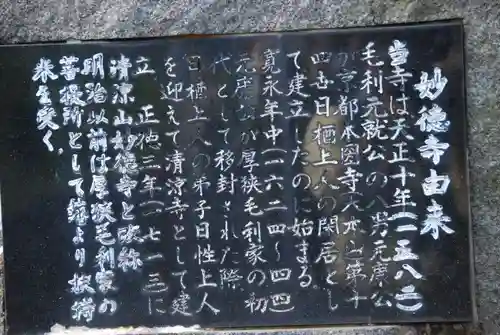 妙徳寺由来
当寺は天正十年(一五八二)
毛利元就公の八男元康公
が京都本圀寺大本山第十
四世日栖上人の閑居とし
て建立したのに始まる
寛永年中(一六二四〜四四)
元康公が厚狭毛利家の初
代として移封された際
日栖上人の弟子日性上人
を迎えて清涼寺として建
立 正徳三年(一七一三)に
清涼山妙徳寺と改称
明治以前は厚狭毛利家の
菩提所として藩より扶持
米を受く、